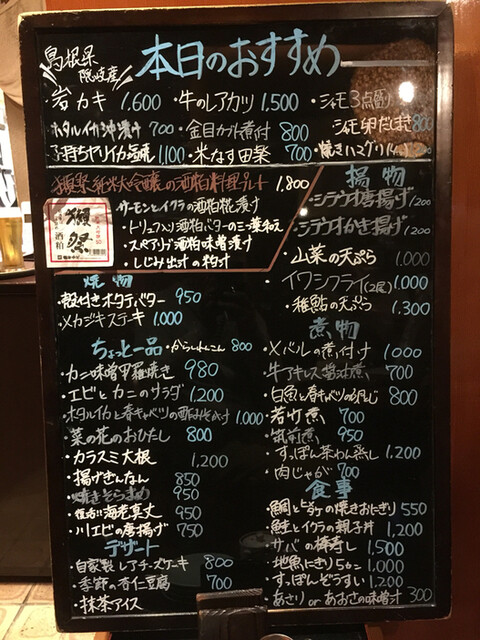 島根県
隠岐産
本日のおすすめ
岩カキ 1.600 ・牛のレアカツ 1,500 ・シャモ3点盛り
ホタルイカ沖漬け 700 ・金目カブト煮付 800 シャモ卵だしまき 800
子持ちヤリイカ 1,100 ・米なす田楽 700 ・焼きハマグリ
獺祭純米大吟醸の酒粕料理プレート 1,800
獺祭
酒粕
サーモンとイクラの酒粕糀漬け
・トリュフ入り酒粕バターの三つ葉和え
・スペアリブ酒粕味噌漬け
・しじみ出汁の粕汁
揚物
・シラウオ唐揚げ 1,200
・シラウオかき揚げ 1,200
・山菜の天ぷら 1,000
・イワシフライ(2尾) 1,000
・稚鮎の天ぷら 1,300
焼物
殻付きホタテバター 950
・メカジキステーキ 1.000
ちょっと一品 ・からしれんこん 800
・カニ味噌甲羅焼き 980
・エビとカニのサラダ 1.200
・ホタルイカと春キャベツの酢みそがけ 1.000
・菜の花のおひたし 800
・カラスミ大根 1,200
・揚げぎんなん 850
・焼きそらまめ 950
・海老真丈 950
・川エビの唐揚げ 750
煮物
・メバルの煮付け 1,000
・牛アキレス醤油煮 700
・白魚と春キャベツの卵とじ 800
・若竹煮 700
・筑前煮 950
・すっぽん茶わん蒸し 1,200
・肉じゃが 700
食事
・鯛と の焼きおにぎり 550
・鮭とイクラの親子丼 1,200
・サバの棒寿し 1,500
・地魚にぎり5かん 1,000
・すっぽんぞうすい 1,200
・あさり or あおさの味噌汁 300
デザート
・自家製レアチーズケーキ 800
・季節の杏仁豆腐 700
・抹茶アイス